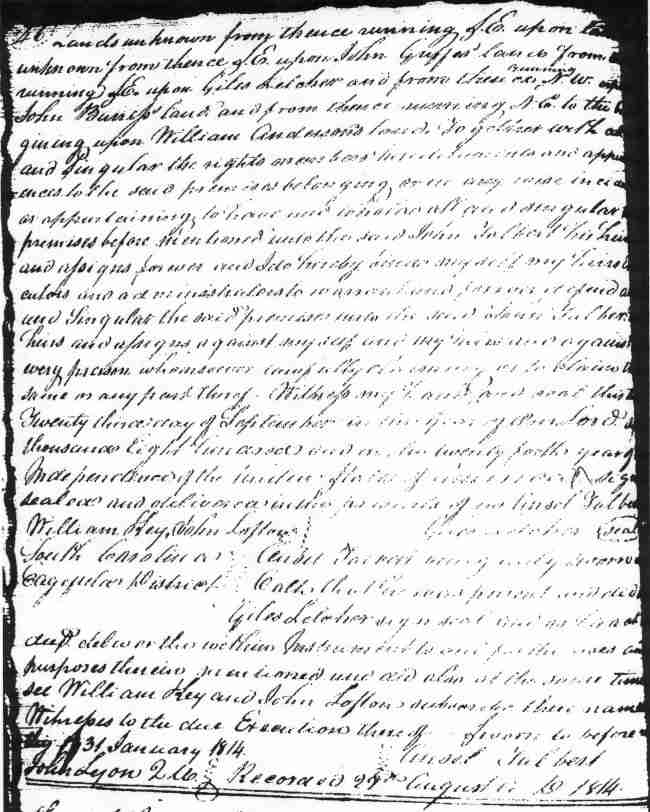 46 Lands unknown from thence running S. E. upon
unknown from thence S. E. upon John Griffes land from
running S. E. upon Giles Letcher and from thence running N. W. up
John Burress land and from thence running N. E. to the
gining upon William Andersons land. Together with
and Singular the rights members hereditaments and appu
ances to the said premises belonging or in any wise inci
or appertaining to have and to hold all and singular
premises before mentioned unto the said John Talbert his hei
and assigns forever and I do hereby bind myself my heirs
cutors and administrators to warrant and forever defend
and Singular the said premises unto the said John Talber
heirs and assigns against myself and my heirs and against
every person whomsoever lawfully claiming or to claim
same or any part thereof. Witness my hand and seal this
Twenty third day of September in the year of Our Lord
thousand Eight hundred and in the twenty forth year of
Independence of the united States of america sign
sealed and delivered in the presents of us Ansel Talber
William Key, John Lofton Giles Letcher Seal
South Carolina Ansel Talbert being duly sworn
Edgefield District Oath that he was present and did
Giles Letcher sign seal and as his act
deed deliver the within Instrument to and for the uses an
purposes therein mentioned and did also at the same time
see William Key and John Lofton subscribe their name
Witnesses to the due Execution thereof. Sworn to before
31 January 1814 Ansel Talbert
John Lyon Recorded 29th August 1814